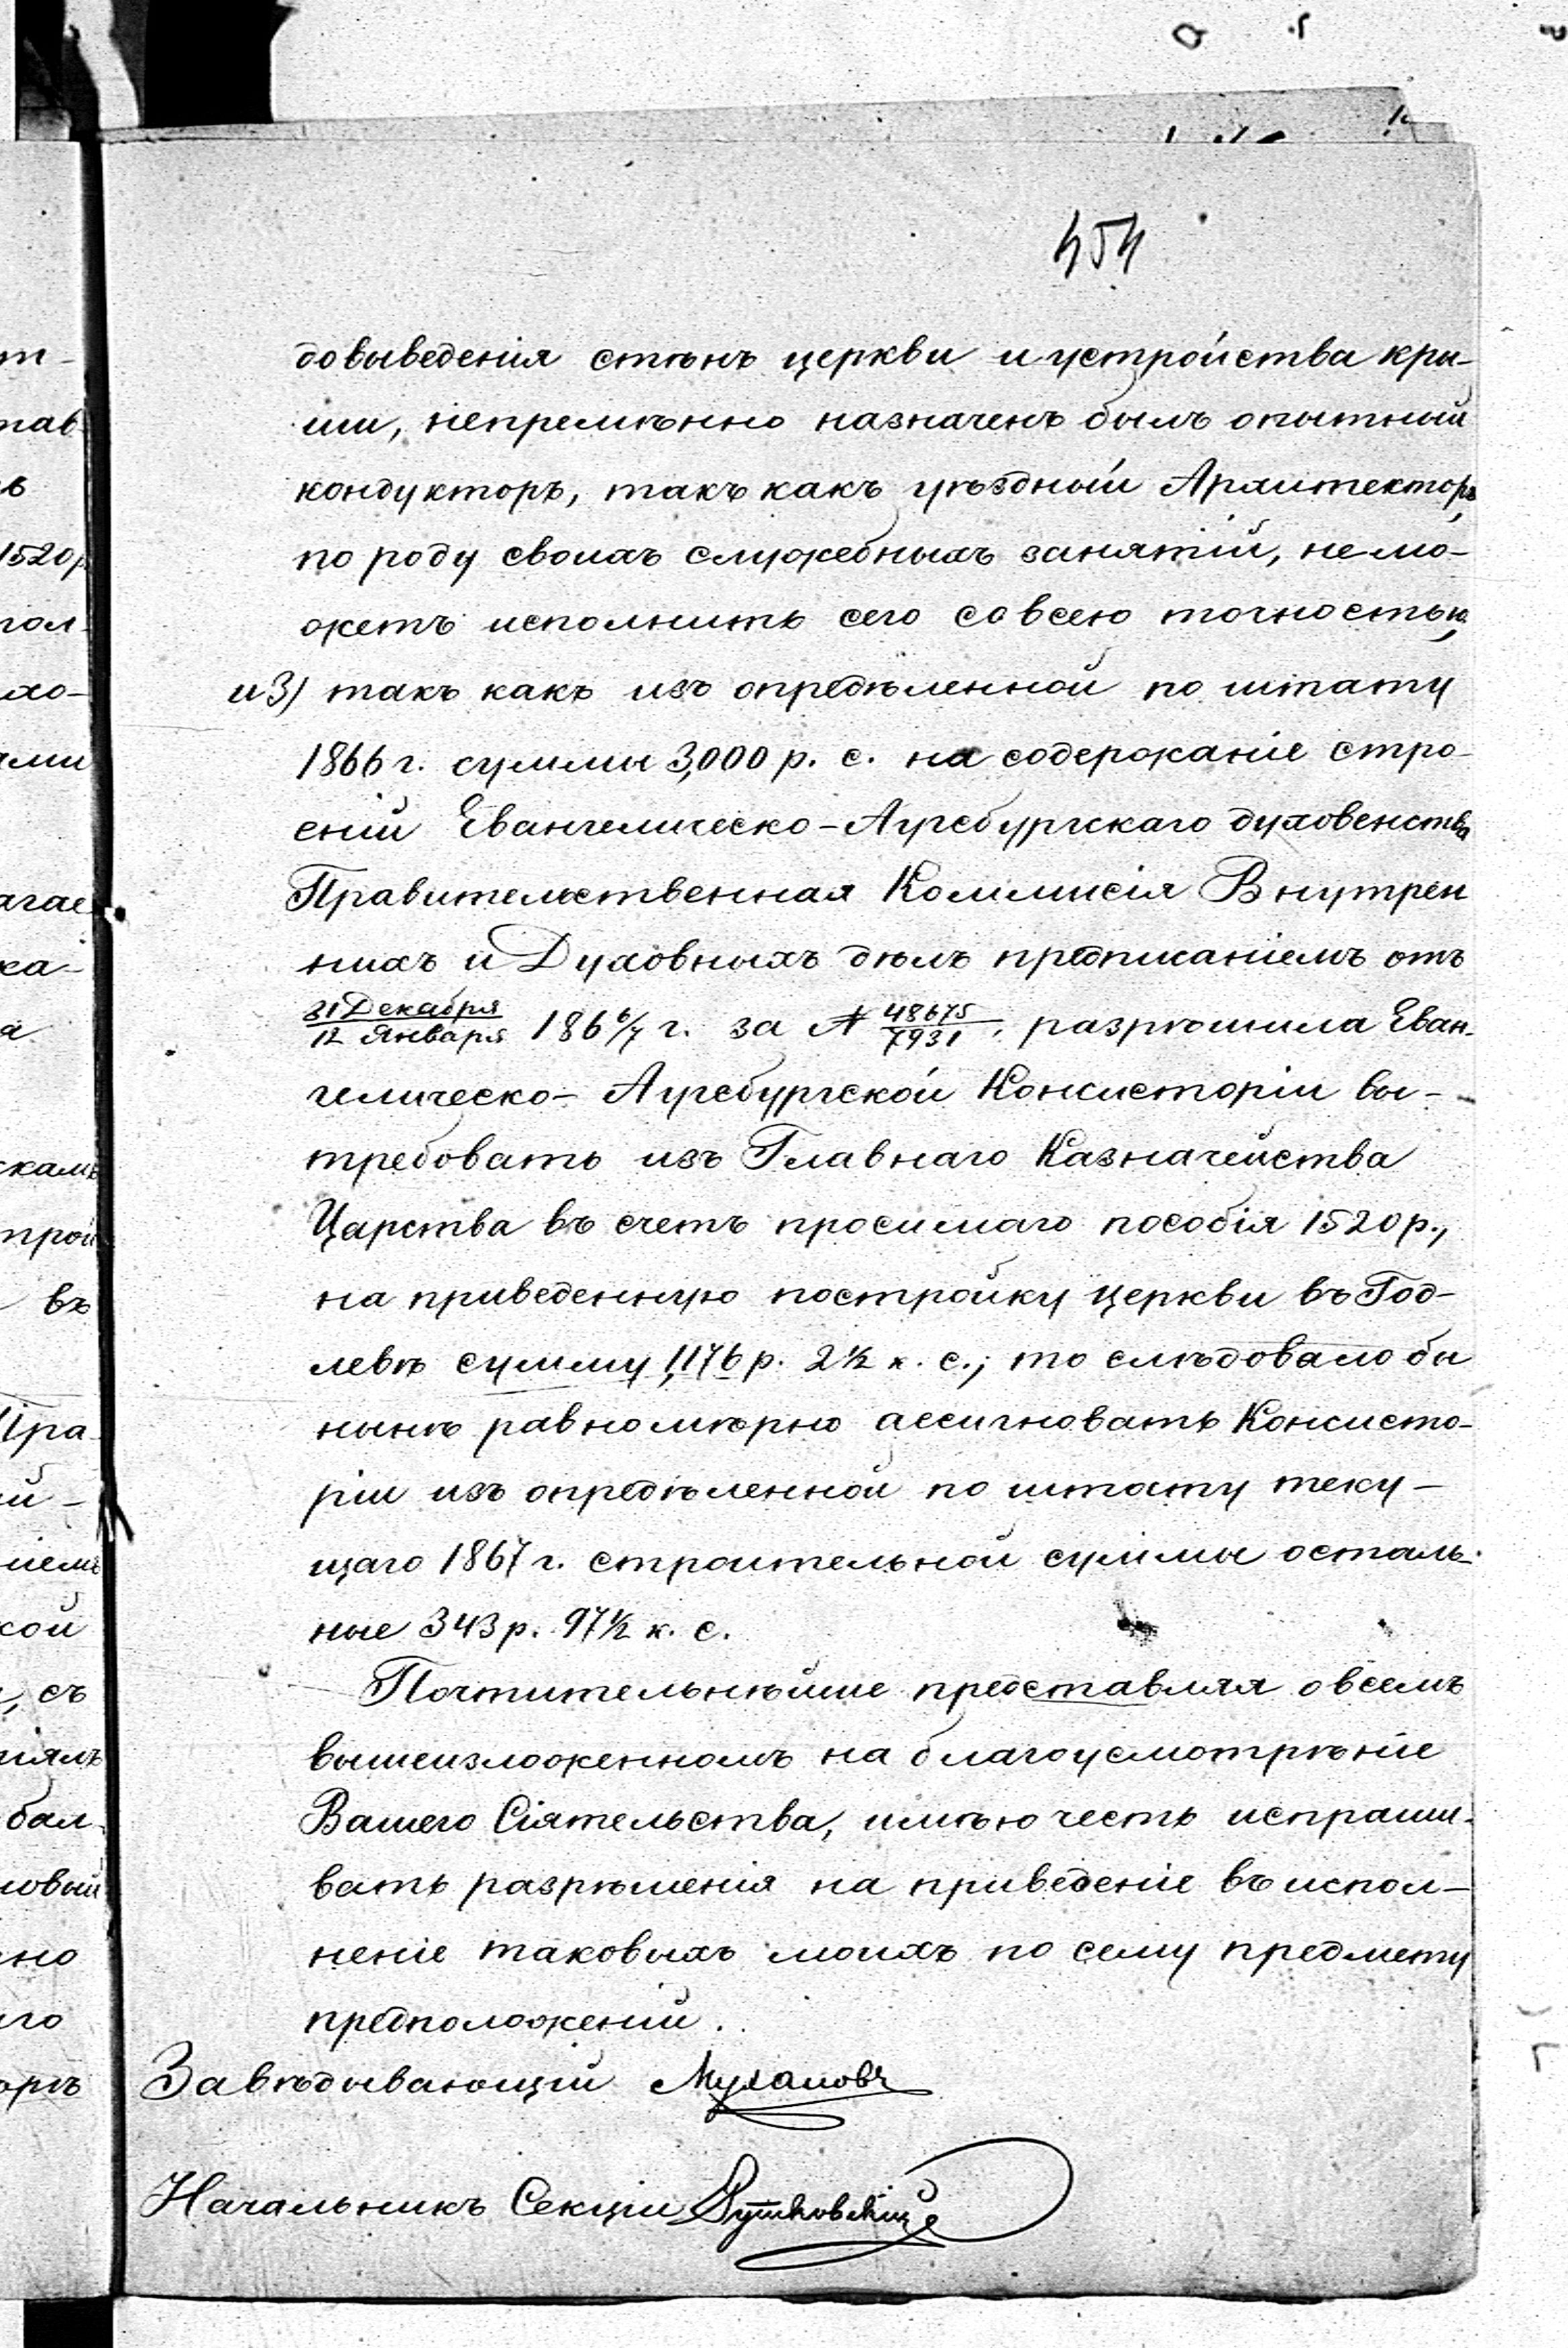 454
до выведенія стѣнъ церкви и устройства кры-
ши, непремѣнно назначенъ былъ опытный
кондукторъ, такъ какъ уѣздный Архитекторъ,
по роду своихъ служебныхъ занятій, не мо-
жетъ исполнить сего со всею точностью,
и 3) такъ какъ изъ опредѣленной по штату
1866 г. суммы 3,000 р. с. на содержаніе стро-
еній Евангелическо-Аугсбургскаго духовенства
Правительственная Коммисія Внутрен
нихъ и Духовныхъ дѣлъ предписаніемъ отъ
31 Декабря / 12 Января 186 6/7 г. за № 48675 / 7931, разрѣшила Еван-
гелическо-Аугсбургской Консисторіи вы-
требовать изъ Главнаго Казначейства
Царства въ счетъ просимаго пособія 1520 р.,
на приведенную постройку церкви въ Год-
левѣ сумму 1,176 р. 2½ к. с.; то слѣдовало бы
нынѣ равномѣрно ассигновать Консисто-
ріи изъ опредѣленной по штату теку-
щаго 1867 г. строительной суммы осталь-
ные 343 р. 97½ к. с.
Почтительнѣйше представляя о всемъ
вышеизложенномъ на благоусмотрѣніе
Вашего Сіятельства, имѣю честь испраши-
вать разрѣшенія на приведеніе въ испол-
неніе таковыхъ моихъ по сему предмету
предположеній.
Завѣдывающій Мухановъ
Начальникъ Секціи
т-
тав
ь
1520 р
пол
хо-
ами
агае
ка-
а
скамъ
трой
въ
Пра
й-
ніемъ
кой
, съ
ніямъ
бал
ловый
но
го
оръ